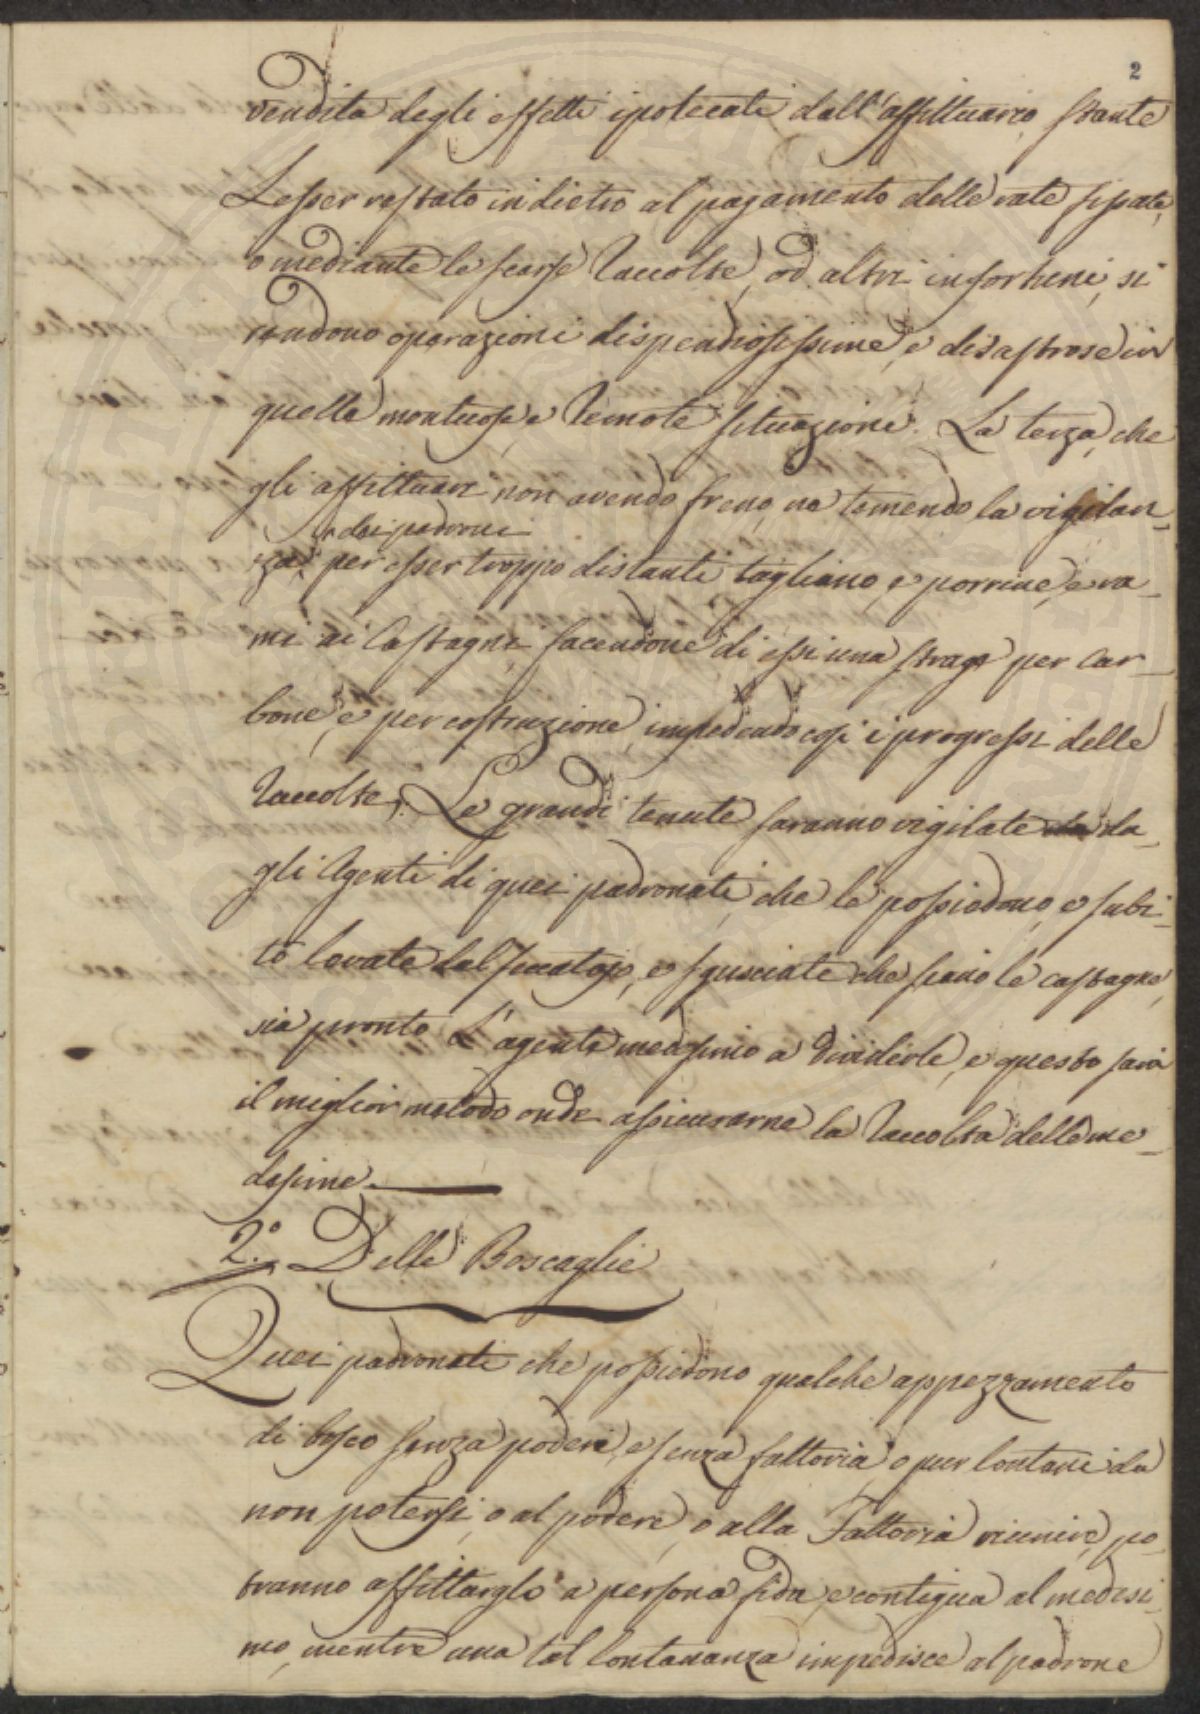 2
vendita degli effetti ipotecati dall'affittuario, stante
L'esser restato indietro al pagamento delle rate fissate,
o mediante le scarse Raccolte, od altri infortuni, si
rendono operazioni dispendiosissime, e disastrose in
quelle montuose, e Remote situazioni. La terza, che
gli affittuari non avendo freno, ne temendo la vigilan-
dei padroni
za per esser troppo distanti tagliano, e porrine, e ra-
mi ai Castagni facendone di essi una strage per Car-
bone, e per costruzione, impedendo così i progressi delle
Raccolte. Le grandi tenute saranno vigilate da-
gli Agenti di quei padronati, che le possiedono, e subi-
to levate dal Seccatojo, e sgusciate che siano le castagne,
sia pronto L'agente medesimo a dividerle, e questo sarà
il miglior metodo onde assicurarne la Raccolta delle me-
desime.
2.° Delle Boscaglie
Quei padronati che possiedono qualche appezzamento
di bosco senza poderi, e senza fattoria, o pur lontani da
non potersi, o al podere, o alla Fattoria riunire, po-
tranno affittarglo a persona fida, e contigua al medesi-
mo, mentre una tal lontananza impedisce al padrone